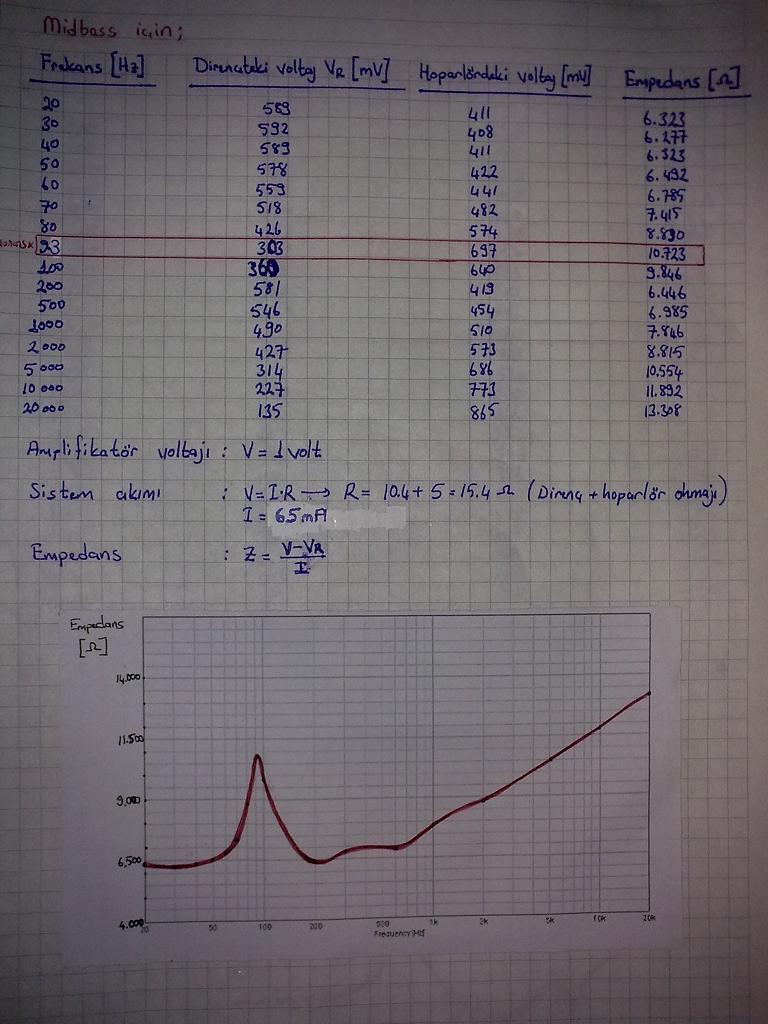 Midbass için;
Frekans [Hz] Dirençteki voltaj VR [mV] Hoparlördeki voltaj [mV] Empedans [Ω]
20 589 411 6.323
30 592 408 6.277
40 589 411 6.323
50 578 422 6.492
60 559 441 6.785
70 518 482 7.415
80 426 574 8.830
93 303 697 10.723
100 360 640 9.846
200 581 419 6.446
500 546 454 6.985
1000 490 510 7.846
2000 427 573 8.815
5000 314 686 10.554
10 000 227 773 11.892
20000 135 865 13.308
Amplifikatör voltajı : V = 1 volt
Sistem akımı : V=I.R → R = 10.4 + 5 = 15.4 Ω (Direnç + hoparlör ohmajı)
I = 65mA
Empedans : Z = V-VR / I
Empedans
[Ω]
14.000
11.500
9.000
6.500
4.000
20 50 100 200 500 1K 2K 5K 10K 20K
Frequency[Hz]